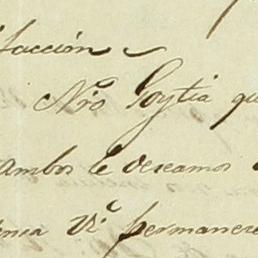 facción
Nro Goytia qu
ambos le deseamos
encia Vc. permanece